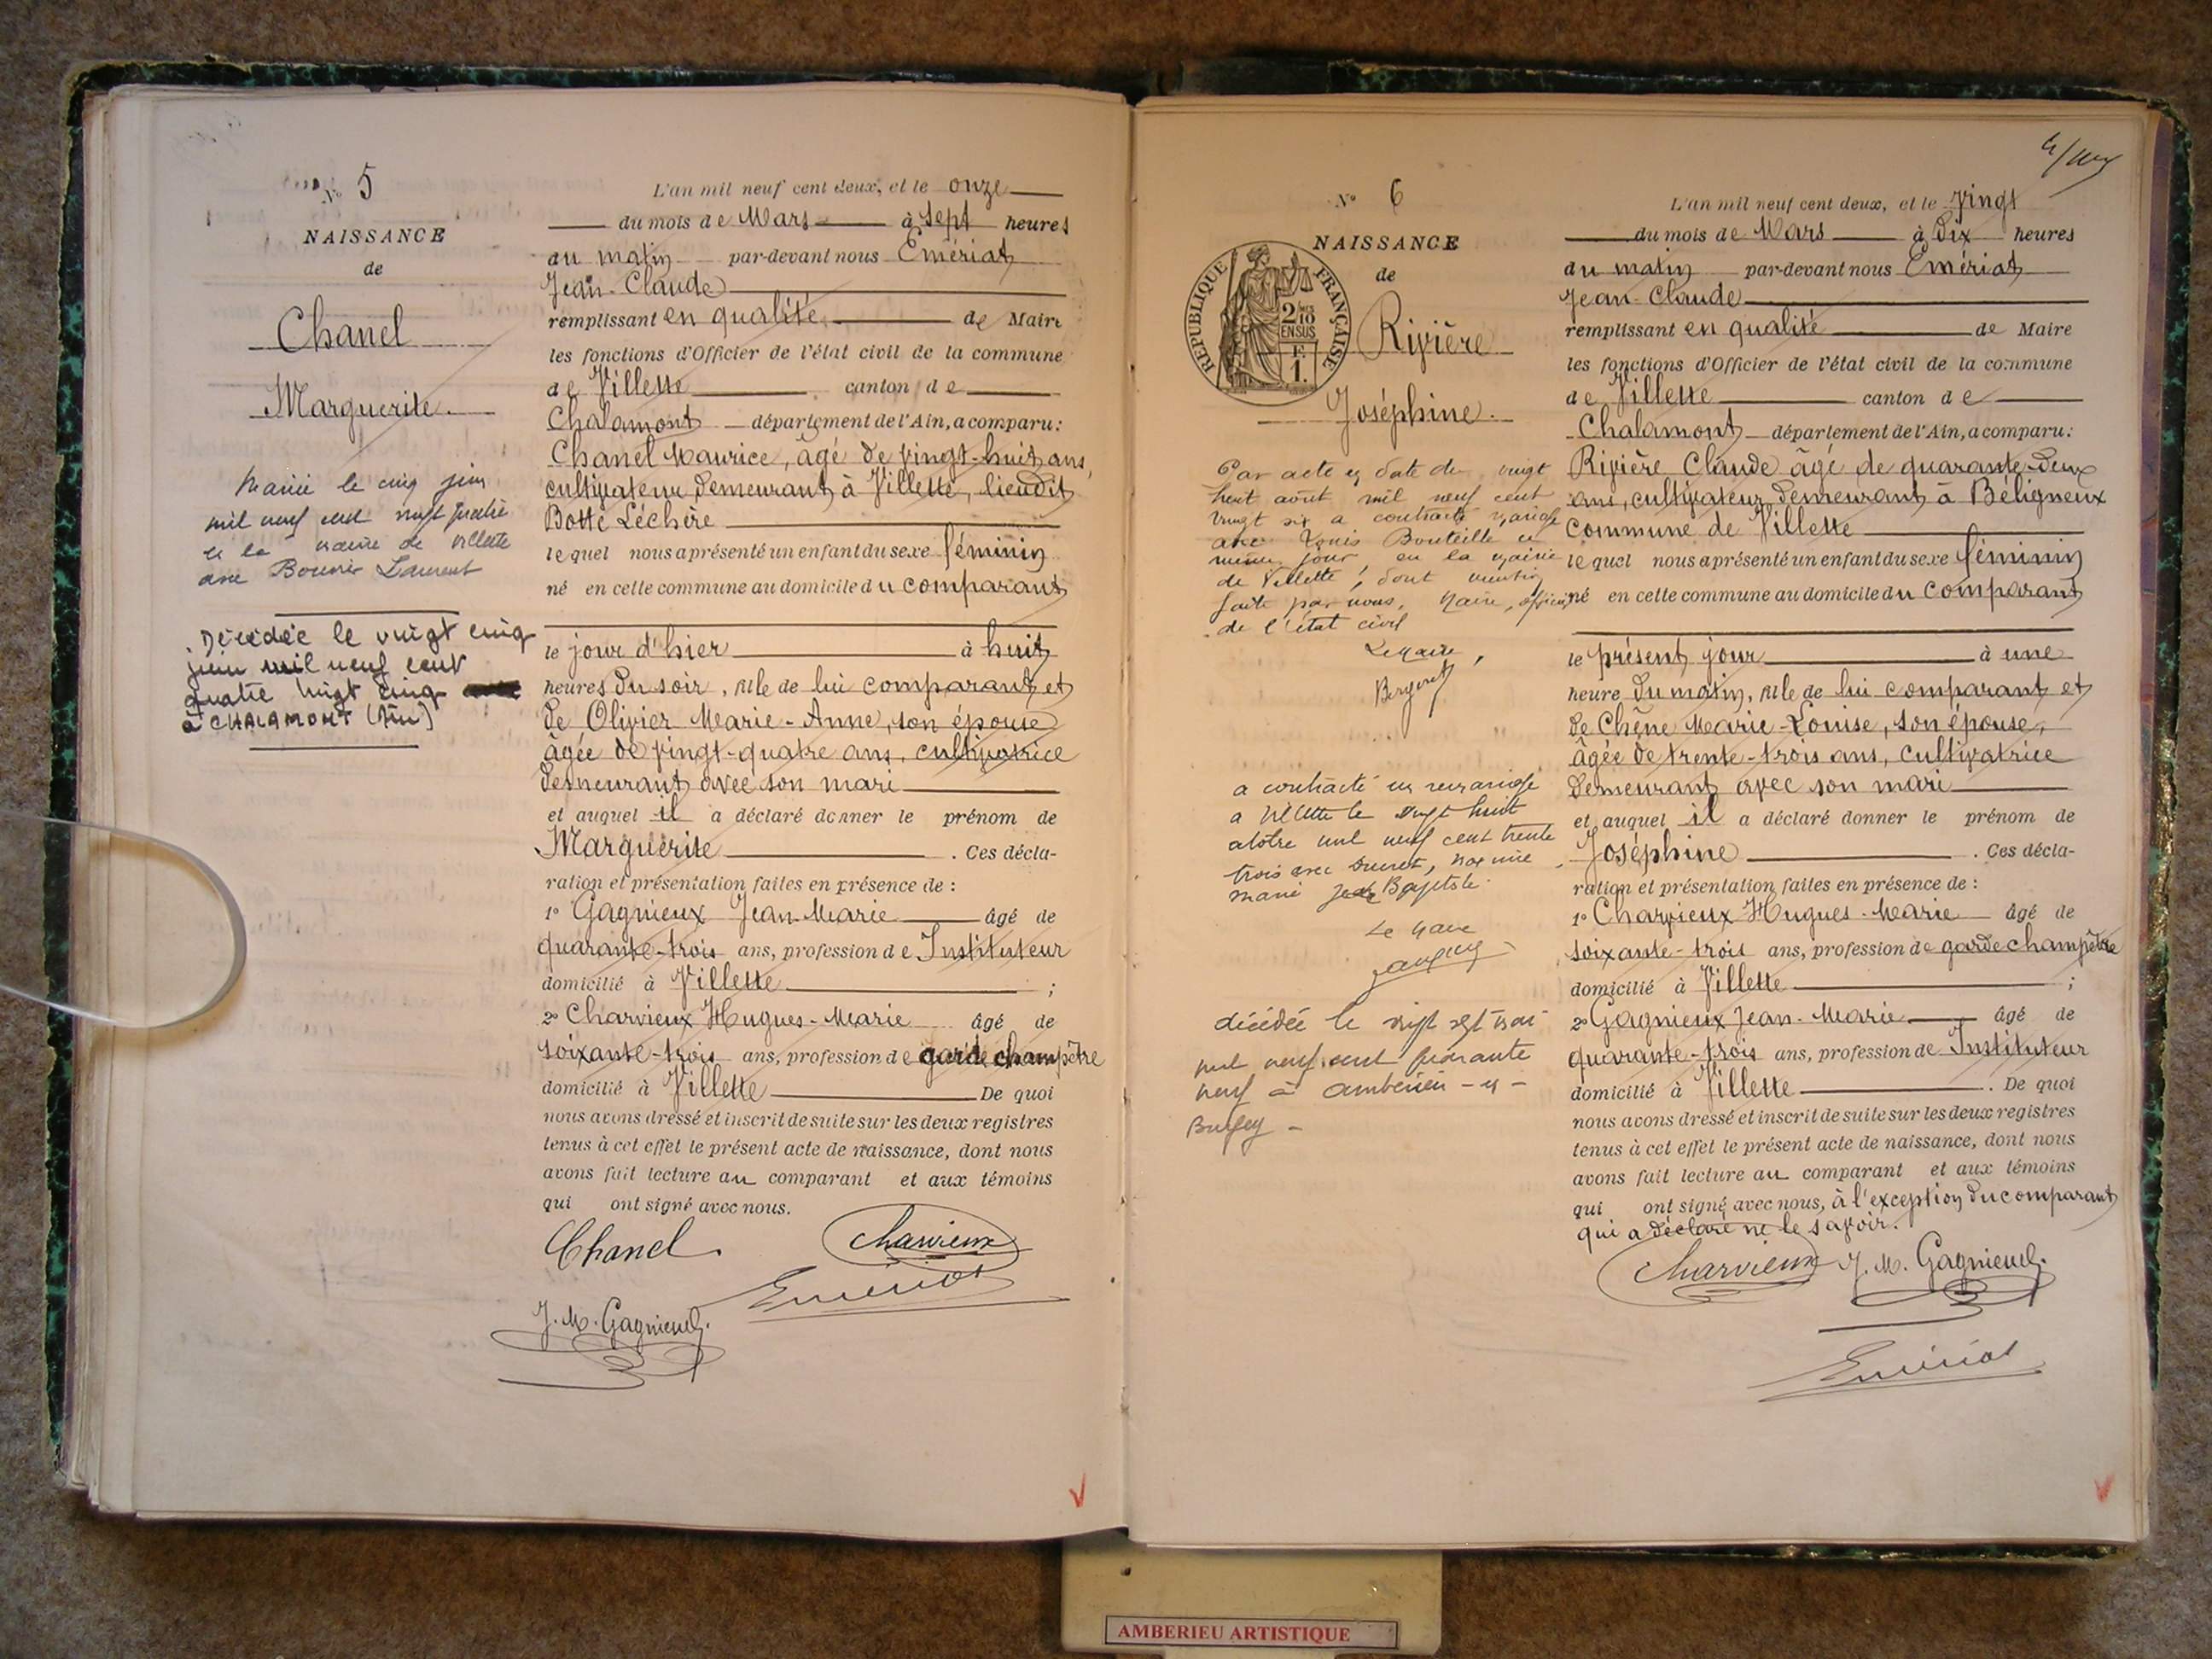 N° 5
NAISSANCE
de
Chanel
Marguerite.
Mariée le cinq juin
mil neuf cent vingt quatre
à la mairie de Villette
avec Bouvier Laurent
Décédée le vingt cinq
juin mil neuf cent
quatre vingt cinq
à CHALAMONT (Ain)
L'an mil neuf cent deux, et le onze
du mois de Mars à sept heures
du matin par-devant nous Emériat
Jean-Claude
remplissant en qualité de Maire
les fonctions d'Officier de l'état civil de la commune
de Villette canton de
Chalamont département de l'Ain, a comparu:
Chanel Maurice, âgé de vingt-huit ans,
cultivateur demeurant à Villette, lieudit
Botte Léchère
lequel nous a présenté un enfant du sexe féminin
né en cette commune au domicile du comparant
le jour d'hier à huit
heures du soir, fille de lui comparant et
de Olivier Marie-Anne, son épouse
âgée de vingt-quatre ans, cultivatrice
demeurant avec son mari
et auquel il a déclaré donner le prénom de
Marguerite. Ces décla-
ration et présentation faites en présence de :
1° Gagnieux Jean-Marie âgé de
quarante-trois ans, profession de Instituteur
domicilié à Villette ;
2° Charvieux Hugues-Marie âgé de
soixante-trois ans, profession de garde champêtre
domicilié à Villette De quoi
nous avons dressé et inscrit de suite sur les deux registres
tenus à cet effet le présent acte de naissance, dont nous
avons fait lecture au comparant et aux témoins
qui ont signé avec nous.
Chanel. Charvieux
Emériat
J. M. Gagnieux.
N° 6
NAISSANCE
de
RÉPUBLIQUE FRANÇAISE
2/10
EN SUS
F.
1.
Rivière
Joséphine.
Par acte en date du vingt
huit août mil neuf cent
vingt six a contracté mariage
avec Louis Bouteille
même jour, en la mairie
de Villette, dont mention
faite par nous, Maire, officier
de l'état civil
Le Maire,
a contracté un mariage
a Villette le vingt huit
octobre mil neuf cent trente
trois avec
marie Baptiste.
Le Maire
décédée le vingt sept mai
mil neuf cent quarante
neuf à Ambérieu-en-
Bugey -
L'an mil neuf cent deux, et le vingt
du mois de Mars à dix heures
du matin par-devant nous Emériat
Jean-Claude
remplissant en qualité de Maire
les fonctions d'Officier de l'état civil de la commune
de Villette canton de
Chalamont département de l'Ain, a comparu:
Rivière Claude âgé de quarante-deux
ans, cultivateur demeurant à Béligneux
commune de Villette
lequel nous a présenté un enfant du sexe féminin
né en cette commune au domicile du comparant
le présent jour à une
heure du matin, fille de lui comparant et
de Chêne Marie-Louise, son épouse,
âgée de trente-trois ans, cultivatrice
demeurant avec son mari
et auquel il a déclaré donner le prénom de
Joséphine. Ces décla-
ration et présentation faites en présence de :
1° Charvieux Hugues-Marie âgé de
soixante-trois ans, profession de garde champêtre
domicilié à Villette ;
2° Gagnieux Jean-Marie âgé de
quarante-trois ans, profession de Instituteur
domicilié à Villette. De quoi
nous avons dressé et inscrit de suite sur les deux registres
tenus à cet effet le présent acte de naissance, dont nous
avons fait lecture au comparant et aux témoins
qui ont signé avec nous, à l'exception du comparant
qui a déclaré ne le savoir.
Charvieux J. M. Gagnieux.
Emériat
AMBERIEU ARTISTIQUE